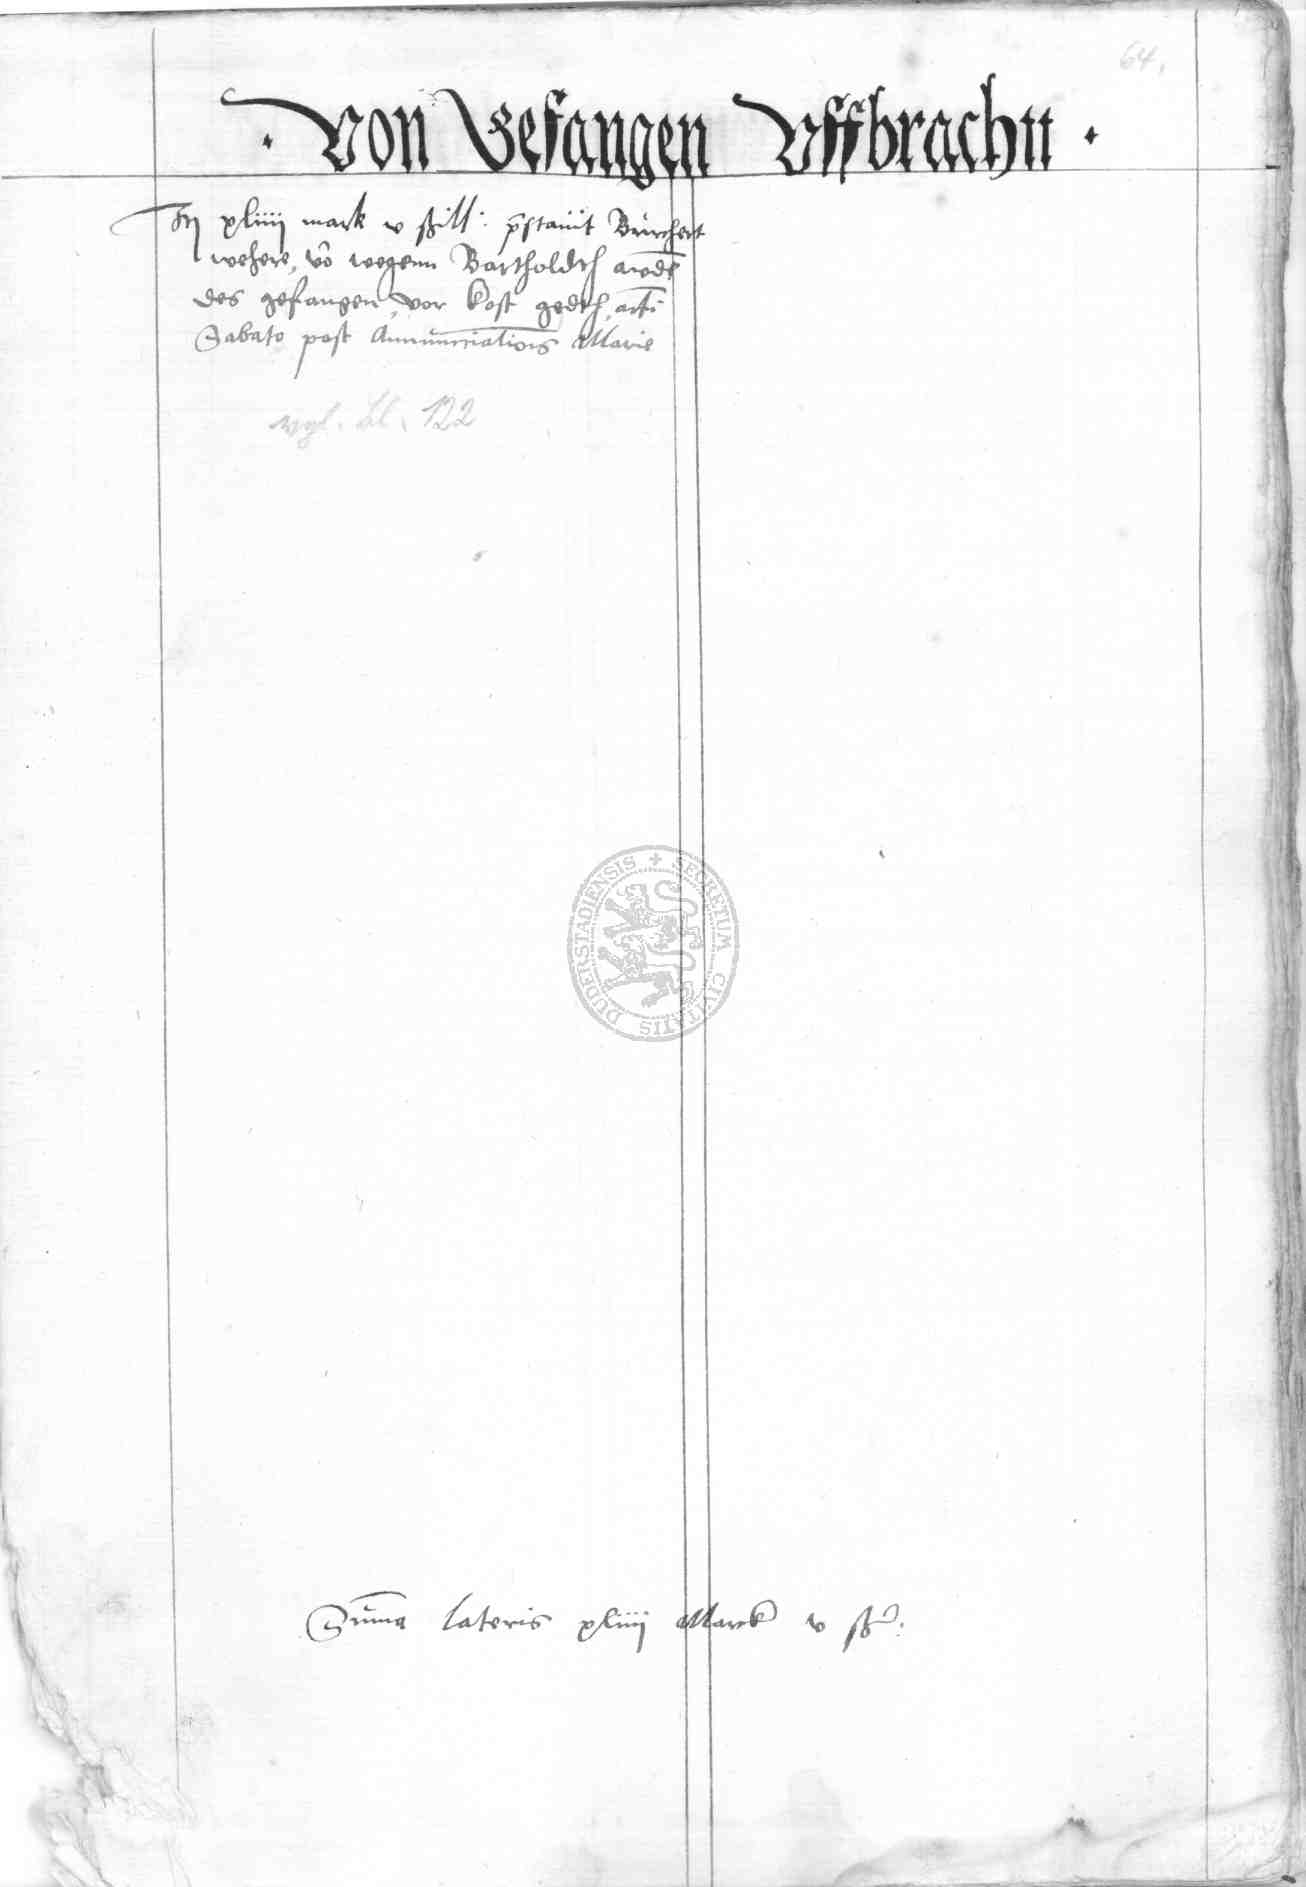 64.
· Von Gefangen Uffbracht ·
xliiij mark v ßill: p̄stauit Burchert
wehere, vō wegenn Bartholdth
des gefangen, vor kost
Sabato post Annuncciationis Marie
vgl. Bl. 122
SECRETUM CIVITATIS DUDERSTADIENSIS
Sūma lateris xliiij Marck v ß.